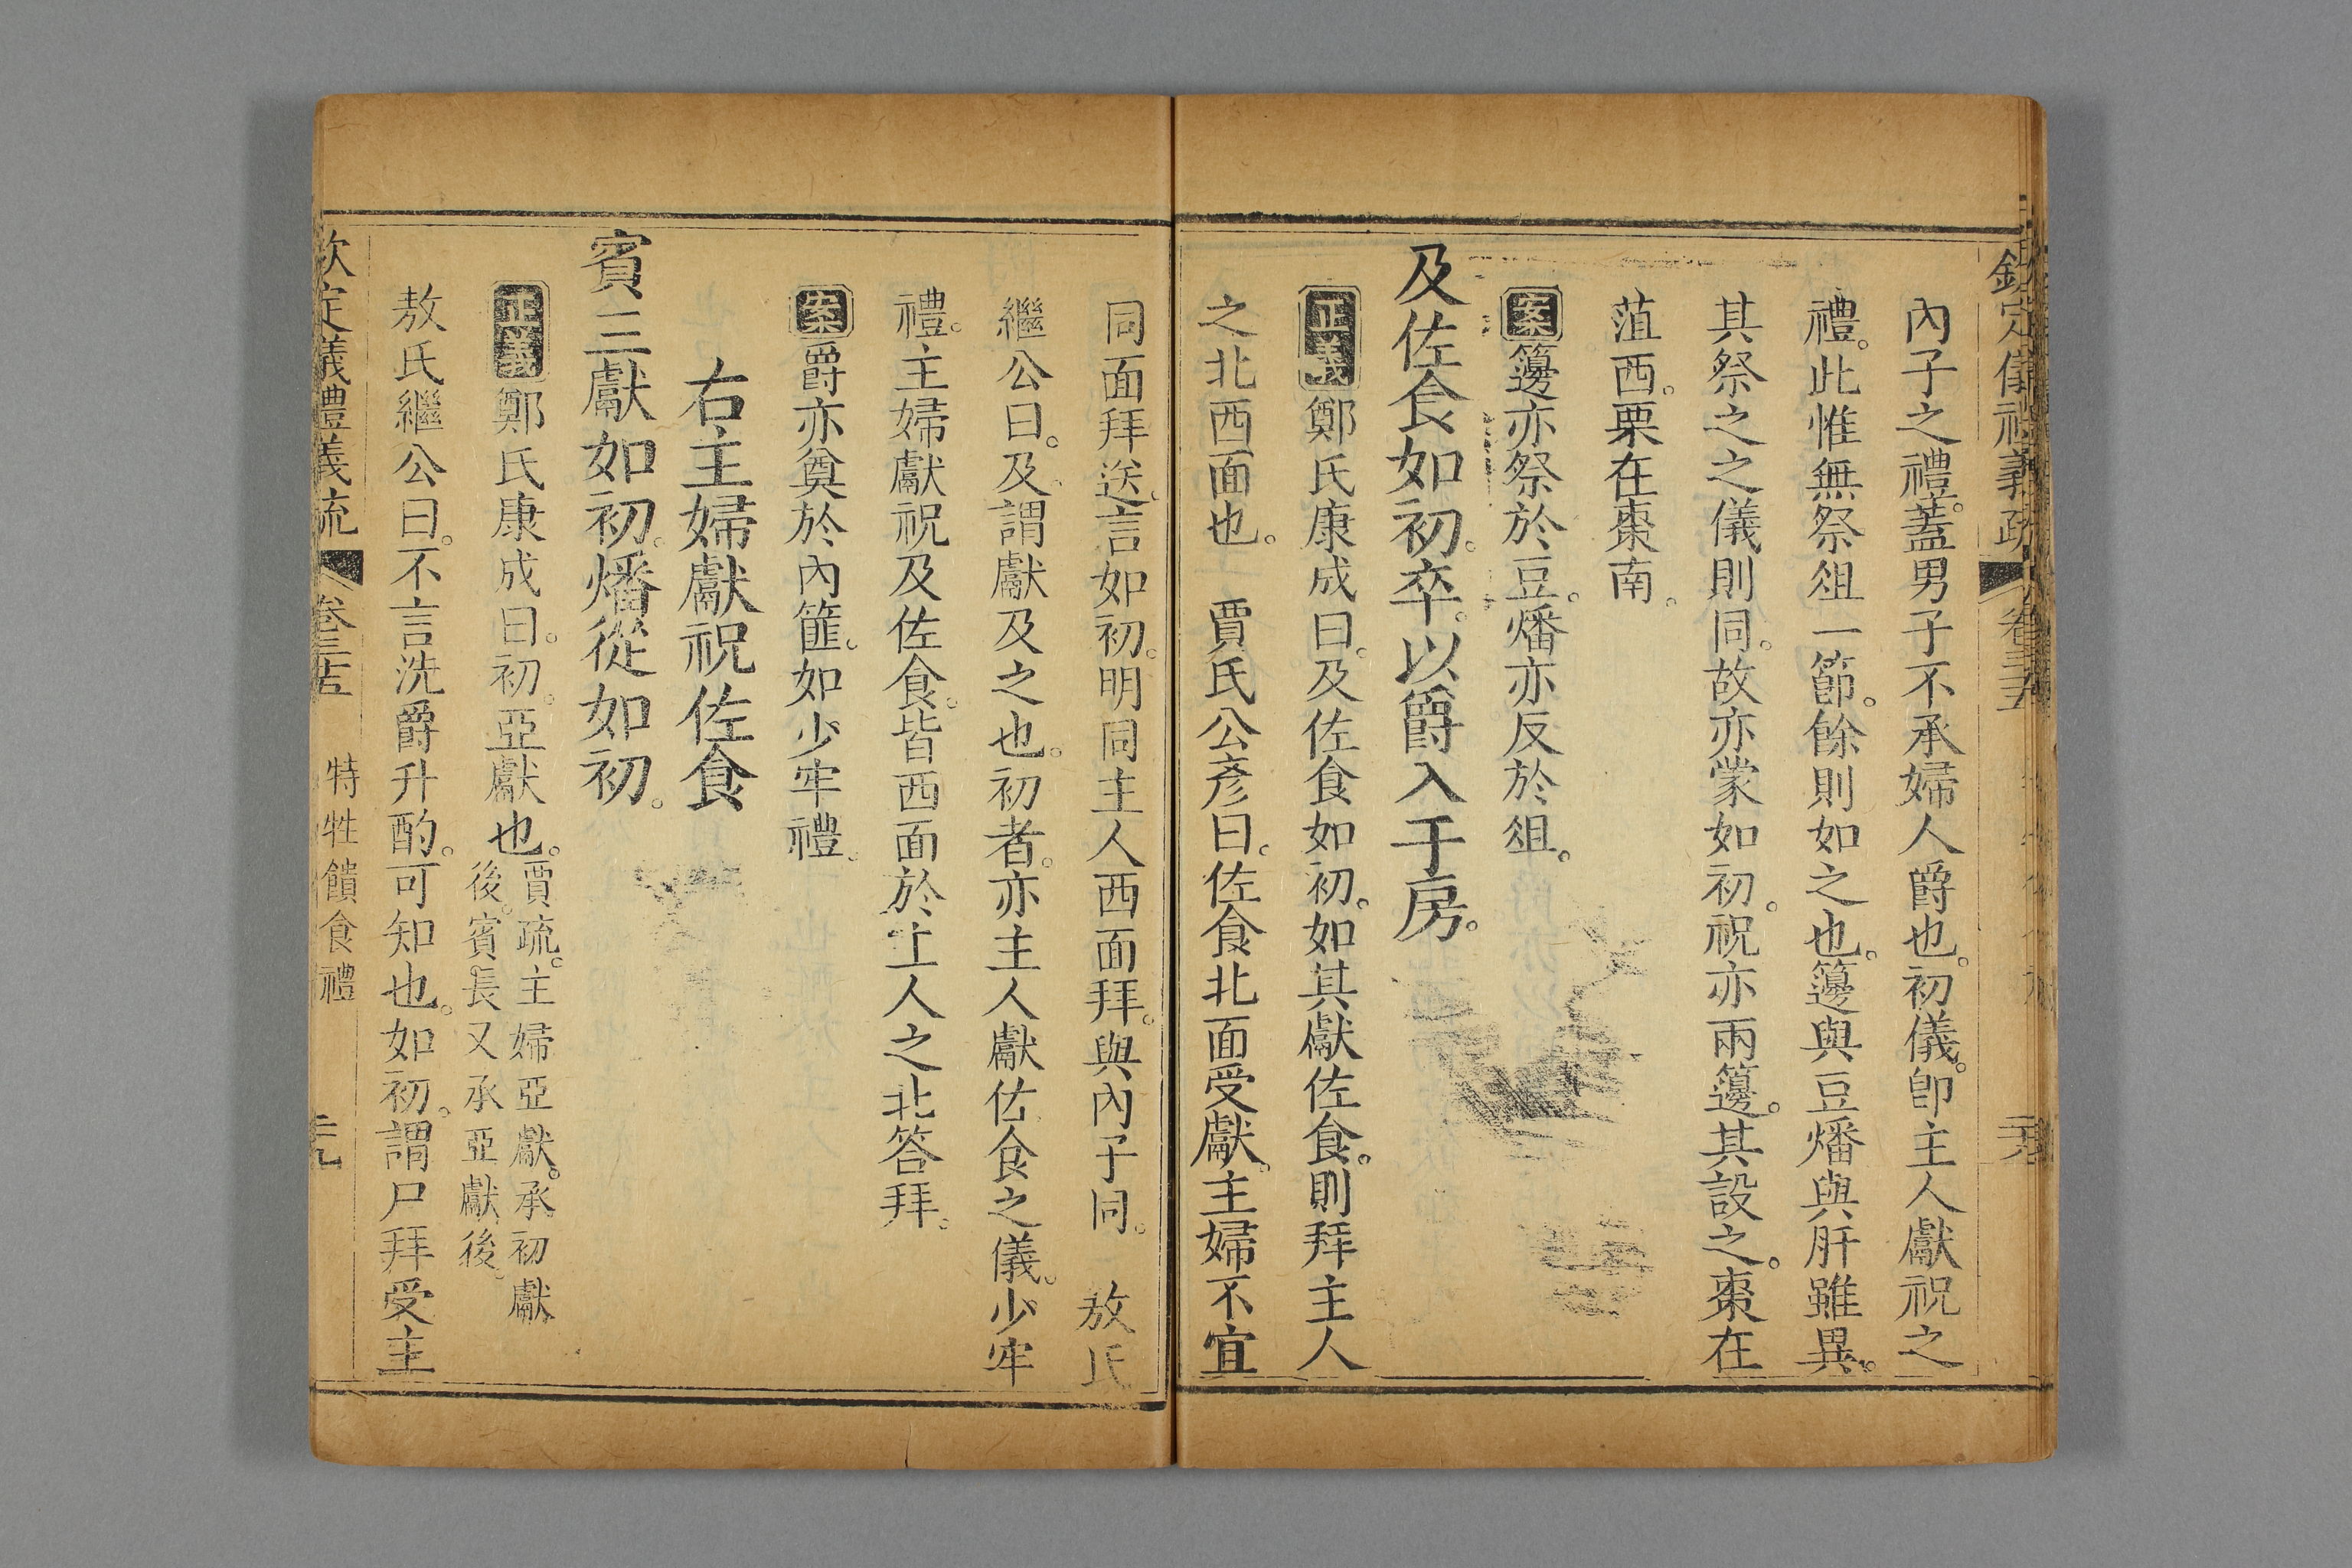 欽定儀禮義疏 卷三十五
內子之禮。蓋男子不承婦人爵也。初儀。卽主人獻祝之
禮。此惟無祭俎一節。餘則如之也。籩與豆燔與肝雖異。
其祭之之儀則同。故亦蒙如初。祝亦兩籩。其設之。棗在
菹西。栗在棗南。
案籩亦祭於豆。燔亦反於俎。
及佐食如初。卒。以爵入于房。
正義鄭氏康成曰。及佐食如初。如其獻佐食。則拜主人
之北西面也。 賈氏公彥曰。佐食北面受獻。主婦不宜
同面拜送。言如初。明同主人西面拜。與內子同。 敖氏
繼公曰。及。謂獻及之也。初者。亦主人獻佐食之儀。少牢
禮。主婦獻祝及佐食。皆西面於主人之北答拜。
案爵亦奠於內篚。如少牢禮。
右主婦獻祝佐食
賓三獻如初。燔從如初。
正義鄭氏康成曰。初。亞獻也。賈疏。主婦亞獻。承初獻
後。賓長又承亞獻後。
敖氏繼公曰。不言洗爵升酌。可知也。如初。謂尸拜受。主
欽定儀禮義疏 卷三十五 特牲饋食禮 三九